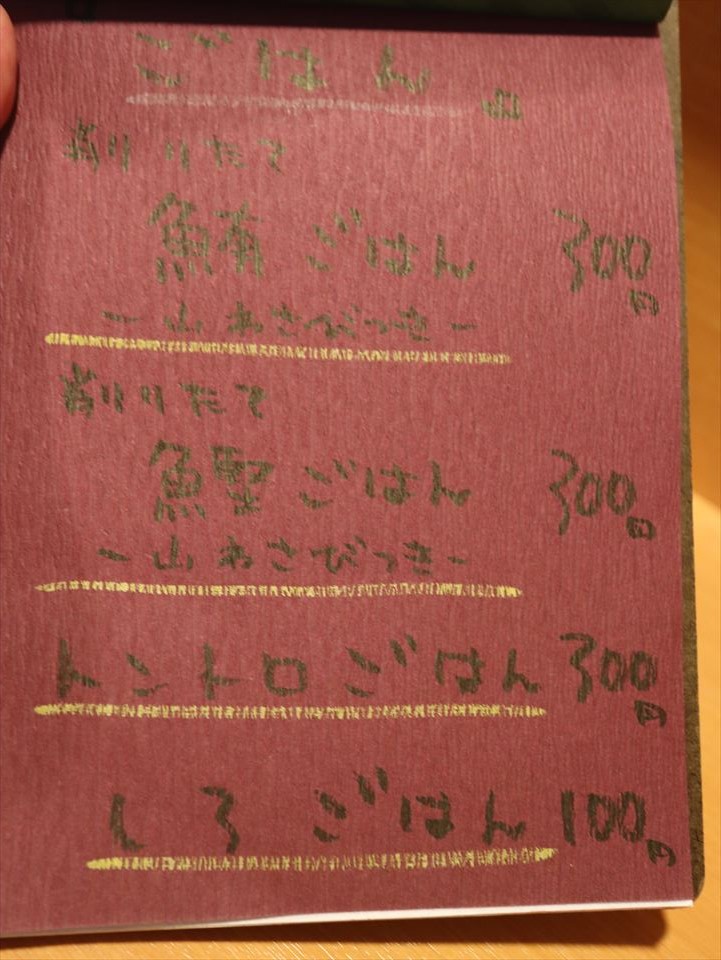 ごはん
削りたて
鮪ごはん 300円
ー山わさびつきー
削りたて
鰹ごはん 300円
ー山わさびつきー
トントロごはん 300円
しろごはん 100円